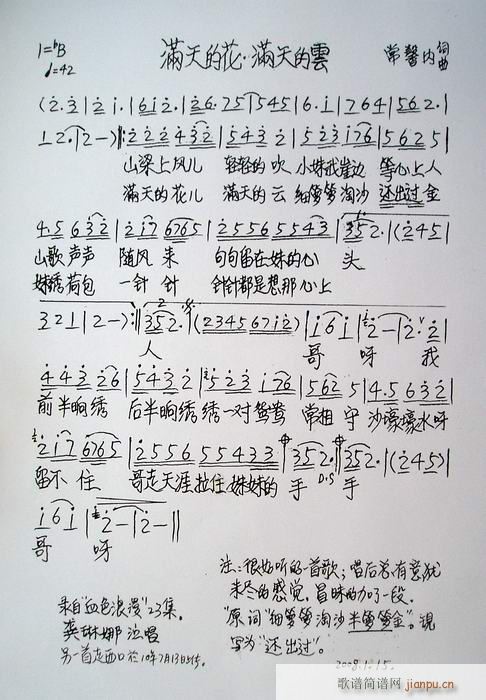 1=♭B
♩=42
滿天的花·滿天的雲
常馨内 词曲
(2.3|2 i.|6 i 2.|2 6. 7 5|5 4 5|6. i|7 6 4|5 6 2.|
1 2.|2 -):‖2 2 2 4 3 2|5 4 3 2|5 2 3 i 7 6|5 6 2 5|
山梁上风儿 轻轻的吹 小妹我崖边 等心上人
滿天的花儿 滿天的云 细箩箩淘沙 还出过金
4.5 6 3 2|2 i 7 6 7 6 5|2 5 5 6 5 5 4 3|3 5 2.|(2 4 5|
山歌声声 随风来 句句留在妹的心头
妹绣荷包 一针针 针针都是想那心上
3 2 1|2 -):‖3 5 2.|(2 3 4 5 6 7 i 2)|i 6 i|2 -|2. 2|
人 哥呀 我
4 4 3 2 6|5 4 3 2|5 2 3 i 7 6|5 6 2 5|4.5 6 3 2|
前半晌绣 后半晌绣 绣一对鸳鸯 常相守 沙壕壕水呀
2 i 7 6 7 6 5|2 5 5 6 5 5 4 3 3|3 5 2.‖3 5 2.|(2 4 5)|
留不住 哥走天涯拉住妹妹的手 D.S 手
i 6 i|2 -|2 -‖
哥呀
注:很好听的一首歌;唱后总有意犹
未尽的感觉,冒昧的加了一段.
"原词"细箩箩淘沙半箩箩金"。现
写为"还出过"。
录自"血色浪漫"23集.
龚琳娜 泣唱
另一首走西口于10年7月13日传.
2008.1.15.
歌谱简谱网
jianpu.cn